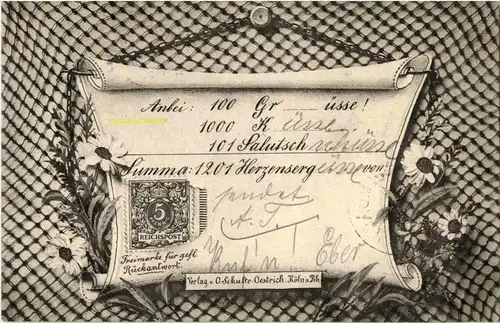 Anbei: 100 Gr üsse!
1000 K üsse
101 Salutsch schüsse
Summa: 1201 Herzenserg üsse von
sendet
A. T.
5
REICHSPOST
Freimarke für gefl.
Rückantwort.
Verlag v. O. Schultz-Oestrich, Köln a. Rh.